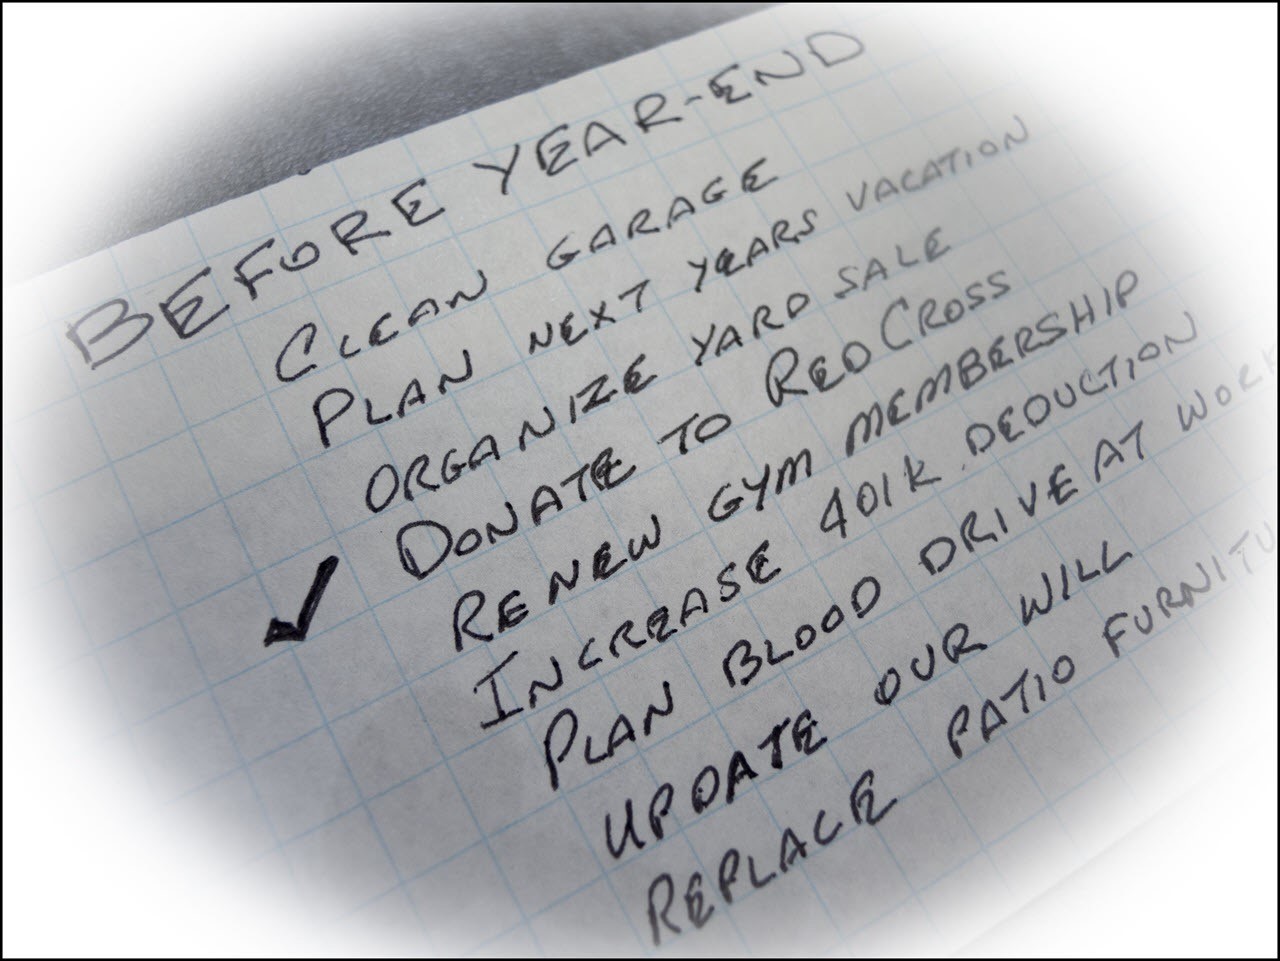 BEFORE YEAR-END
CLEAN GARAGE
PLAN NEXT YEARS VACATION
ORGANIZE YARD SALE
✓ DONATE TO RED CROSS
RENEW GYM MEMBERSHIP
INCREASE 401K DEDUCTION
PLAN BLOOD DRIVE AT WORK
UPDATE OUR WILL
REPLACE PATIO FURNITU